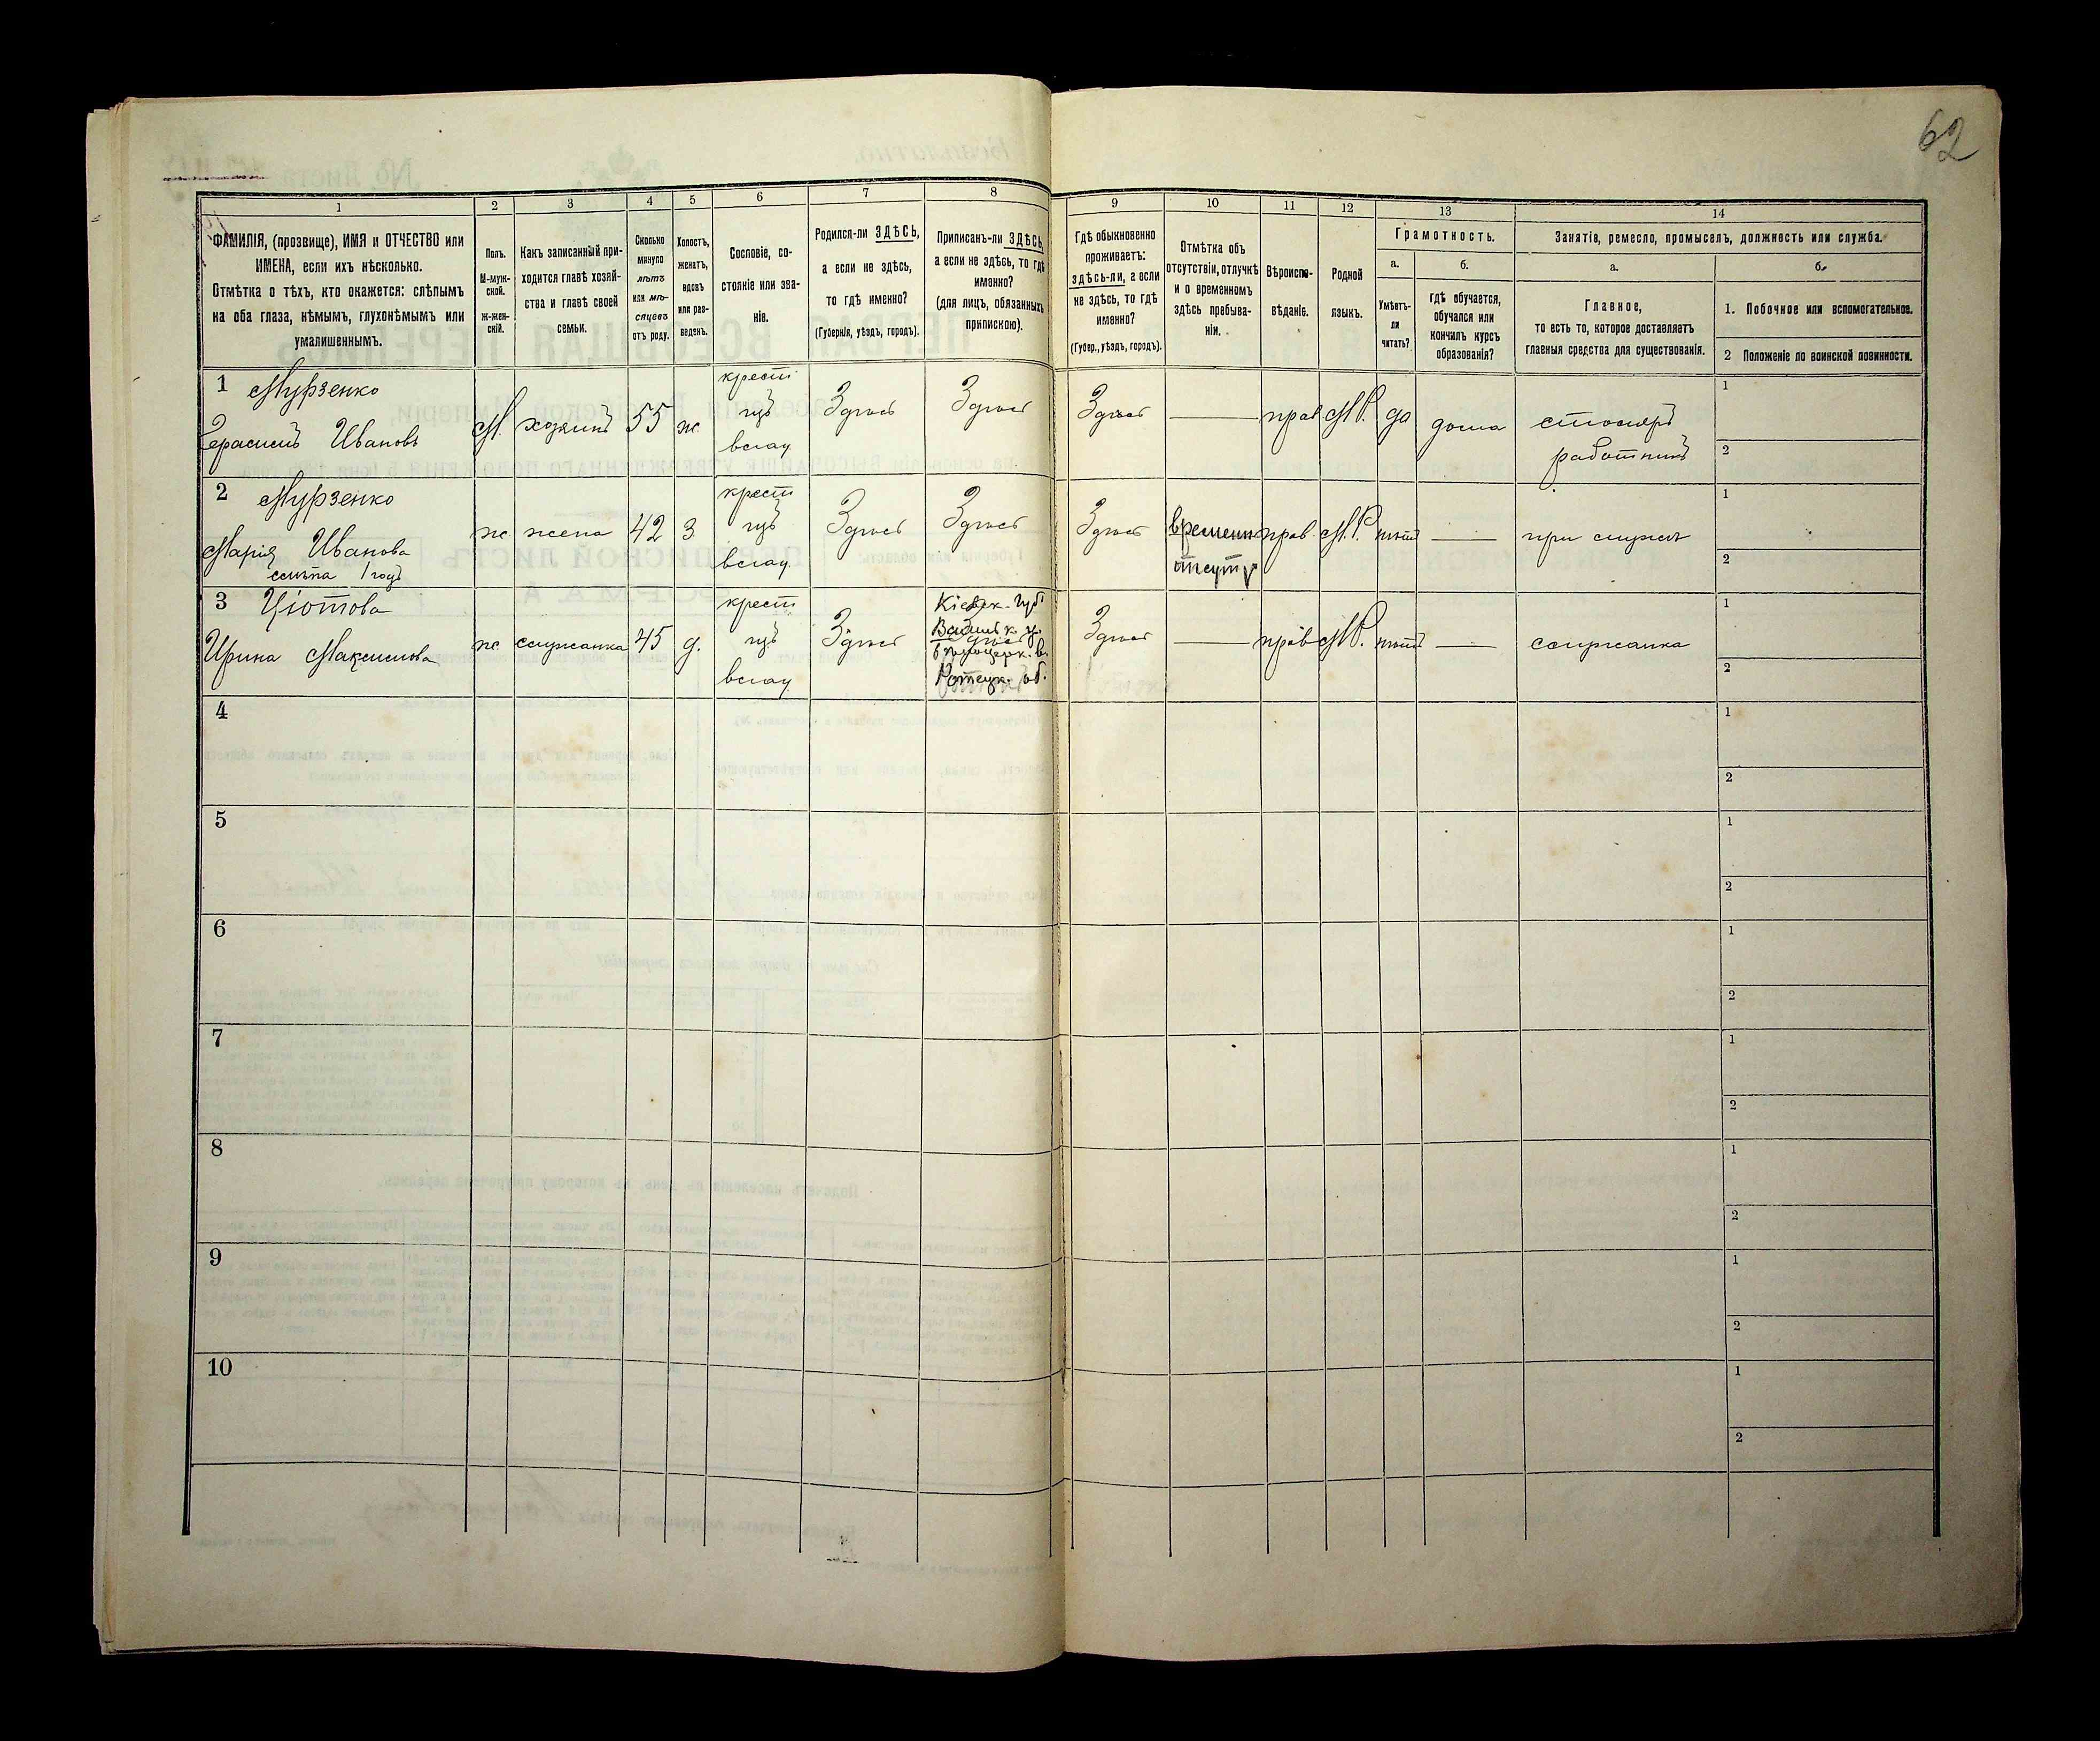 62
1
2
3
4
5
6
7
8
9
10
11
12
13
14
ФАМИЛІЯ, (прозвище), ИМЯ и ОТЧЕСТВО или
ИМЕНА, если ихъ нѣсколько.
Отмѣтка о тѣхъ, кто окажется: слѣпымъ
на оба глаза, нѣмымъ, глухонѣмымъ или
умалишеннымъ.
Полъ.
М-муж-
ской.
Ж-жен-
скій.
Какъ записанный при-
ходится главѣ хозяй-
ства и главѣ своей
семьи.
Сколько
минуло
лѣтъ
или мѣ-
сяцевъ
отъ роду.
Холостъ,
женатъ,
вдовъ
или раз-
веденъ.
Сословіе, со-
стояніе или зва-
ніе.
Родился-ли ЗДѢСЬ,
а если не здѣсь,
то гдѣ именно?
(Губернія, уѣздъ, городъ).
Приписанъ-ли ЗДѢСЬ,
а если не здѣсь, то гдѣ
именно?
(для лицъ, обязанныхъ
припискою).
Гдѣ обыкновенно
проживаетъ:
здѣсь-ли, а если
не здѣсь, то гдѣ
именно?
(Губер., уѣздъ, городъ).
Отмѣтка объ
отсутствіи, отлучкѣ
и о временномъ
здѣсь пребыва-
ніи.
Вѣроиспо-
вѣданіе.
Родной
языкъ.
Грамотность.
а.
Умѣетъ-
ли
читать?
б.
гдѣ обучается,
обучался или
кончилъ курсъ
образованія?
Занятіе, ремесло, промыселъ, должность или служба.
а.
Главное,
то есть то, которое доставляетъ
главныя средства для существованія.
б.
1. Побочное или вспомогательное.
2 Положеніе по воинской повинности.
1 Мурзенко
Герасимъ Ивановъ
М. хозяинъ 55 ж
крест
изъ
влад.
Здѣсь Здѣсь Здѣсь — прав М.Р. да дома
столяръ
работникъ
1
2
2 Мурзенко
Марія Иванова
слѣпа 1 годъ
ж жена 42 з
крест
изъ
влад.
Здѣсь Здѣсь Здѣсь
временн
отсут
прав. М.Р. нѣтъ — при мужѣ
1
2
3 Цютова
Ирина Максимова
ж служанка 45 д.
крест
изъ
влад.
Здѣсь
Кіевск. губ
Васильк. у.
Бѣлоцерк. в.
об.
Здѣсь — прав М.Р. нѣтъ — служанка
1
2
4
1
2
5
1
2
6
1
2
7
1
2
8
1
2
9
1
2
10
1
2